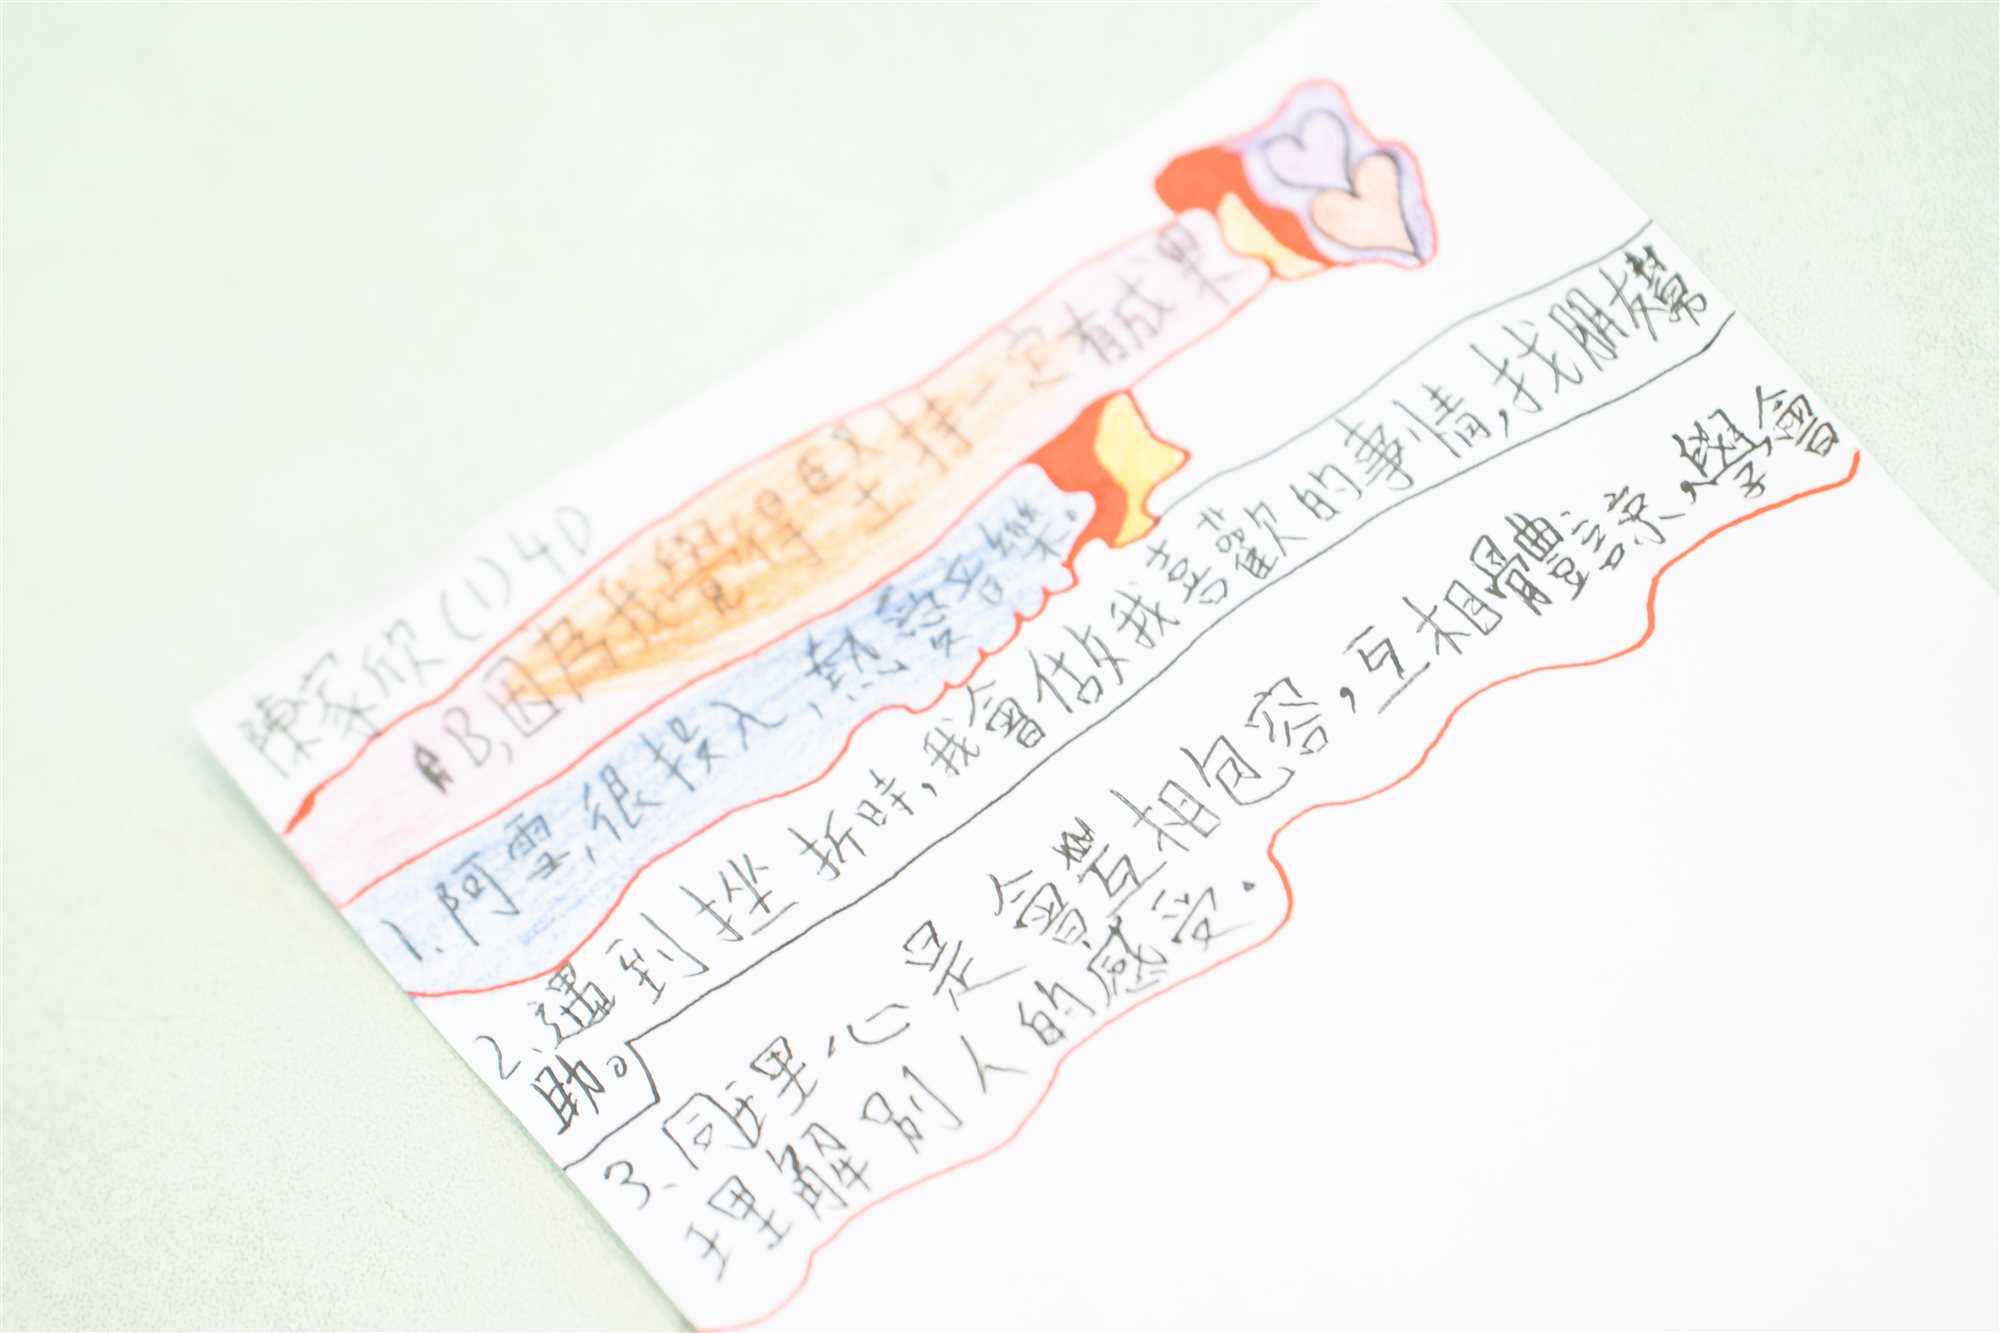 陳家欣(1)4D
B,因為我覺得堅持一定有成果
1.阿雪,很投入,熱愛音樂。
2、遇到挫折時,我會做我喜歡的事情,找朋友幫
助。
3、同理心是會互相包容,互相體諒,學會
理解別人的感受.